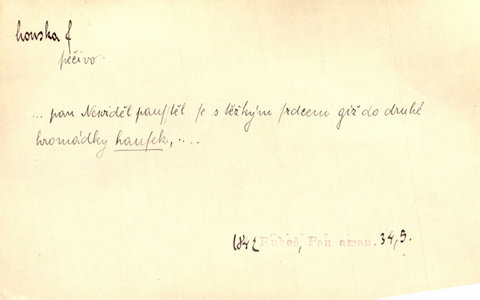 houska f
pečivo.
... pan Newiděl pauſſtěl ſe s těžkým ſrdcem giž do druhé
hromádky hauſek, ....
1842 Rubeš, Pan aman. 34,5.